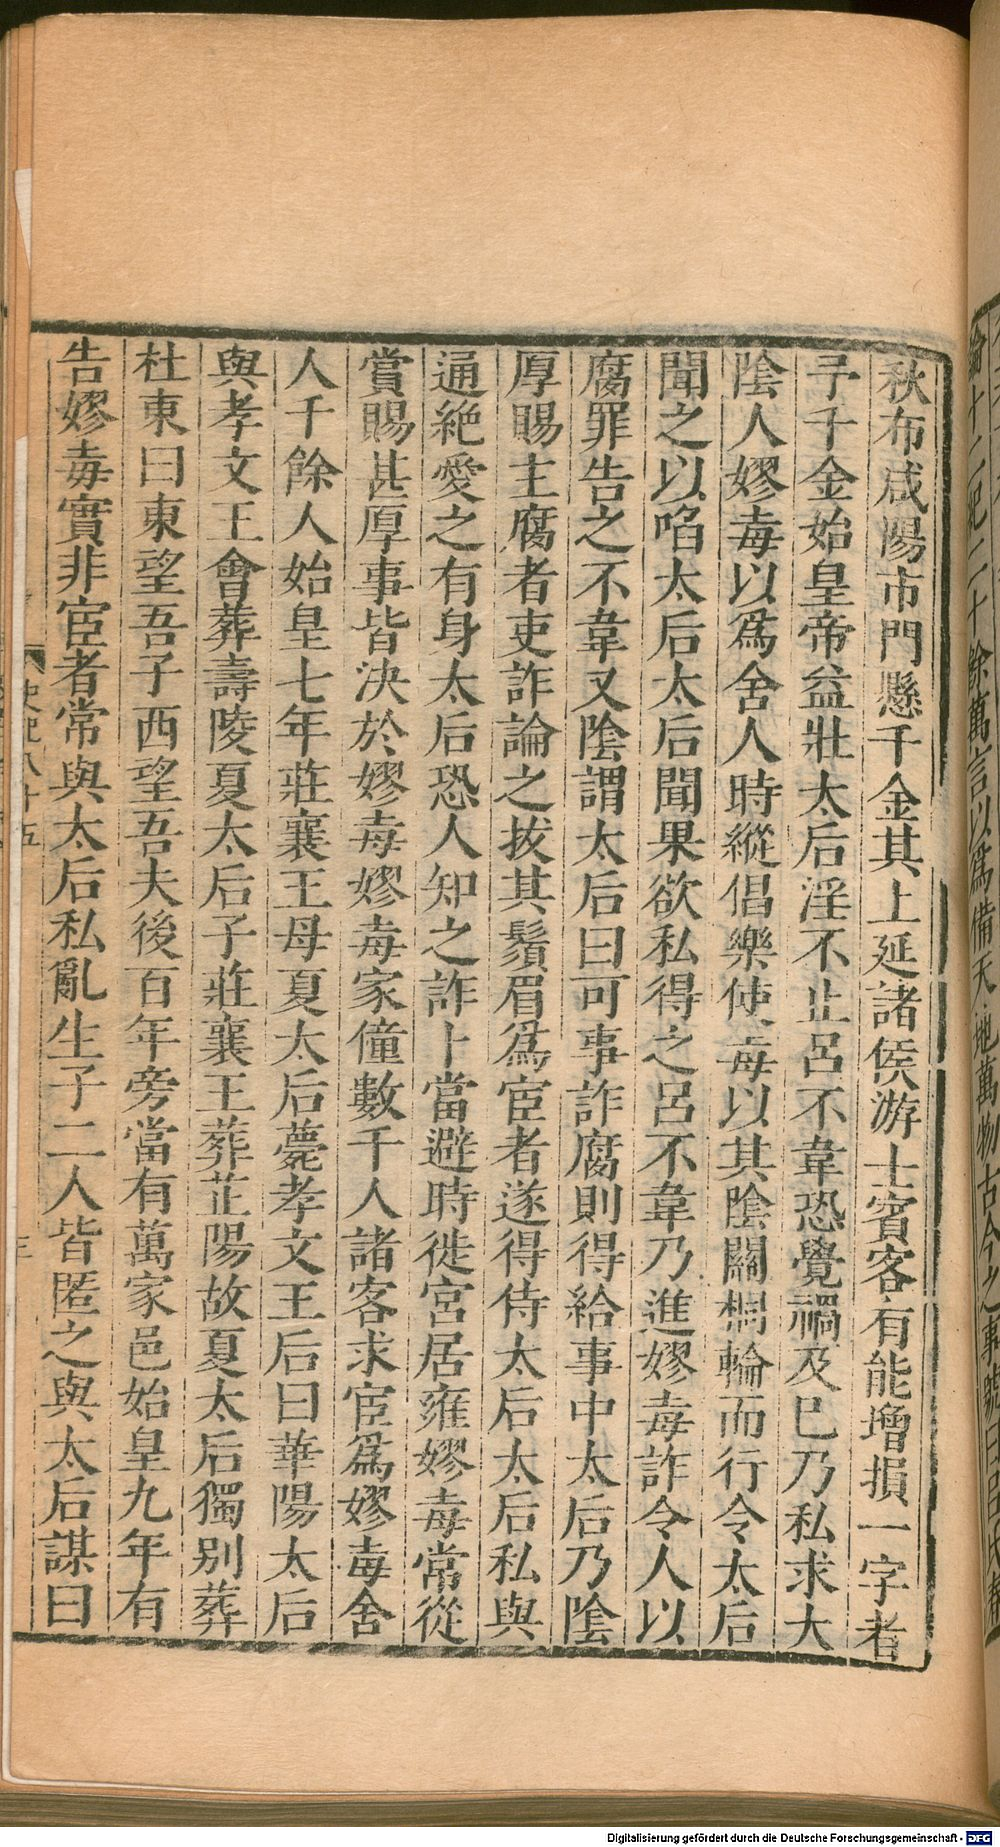 論十二紀二十餘萬言以爲備天地萬物古今之事號曰呂氏春
秋布咸陽市門懸千金其上延諸侯游士賓客有能增損一字者
予千金始皇帝益壯太后淫不止呂不韋恐覺禍及已乃私求大
陰人嫪毐以爲舍人時縱倡樂使毐以其陰關桐輪而行令太后
聞之以啗太后太后聞果欲私得之呂不韋乃進嫪毐詐令人以
腐罪告之不韋又陰謂太后曰可事詐腐則得給事中太后乃陰
厚賜主腐者吏詐論之拔其鬚眉爲宦者遂得侍太后太后私與
通絶愛之有身太后恐人知之詐卜當避時徙宮居雍嫪毐常從
賞賜甚厚事皆決於嫪毐嫪毐家僮數千人諸客求宦爲嫪毐舍
人千餘人始皇七年莊襄王母夏太后薨孝文王后曰華陽太后
與孝文王會葬壽陵夏太后子莊襄王葬芷陽故夏太后獨别葬
杜東曰東望吾子西望吾夫後百年旁當有萬家邑始皇九年有
告嫪毐實非宦者常與太后私亂生子二人皆匿之與太后謀曰
史記八十五
三
Digitalisierung gefördert durch die Deutsche Forschungsgemeinschaft - DFG